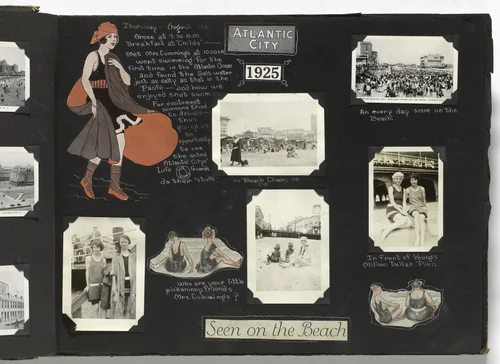 Thursday - August
Arose at 7:30 A.M.
Breakfast at "Childs"
Met Mrs. Cummings at 10:00 A.M.
went swimming for the
first time in the Atlantic Ocean
and found the Salt water
just as salty as that in the
"Pacific" - and how we
enjoyed that swim.
For excitement
someone tried
to drown -
thus
giving us
an
opportunity
to see
the noted
Atlantic City
Life Guards
do their "stuff"
ATLANTIC
CITY
1925
An every day scene on the
Beach.
Beach Chairs
In front of Young's
Million Dollar Pier.
Who are your little
pickaninny friends
Mrs. Cummings?
Seen on the Beach